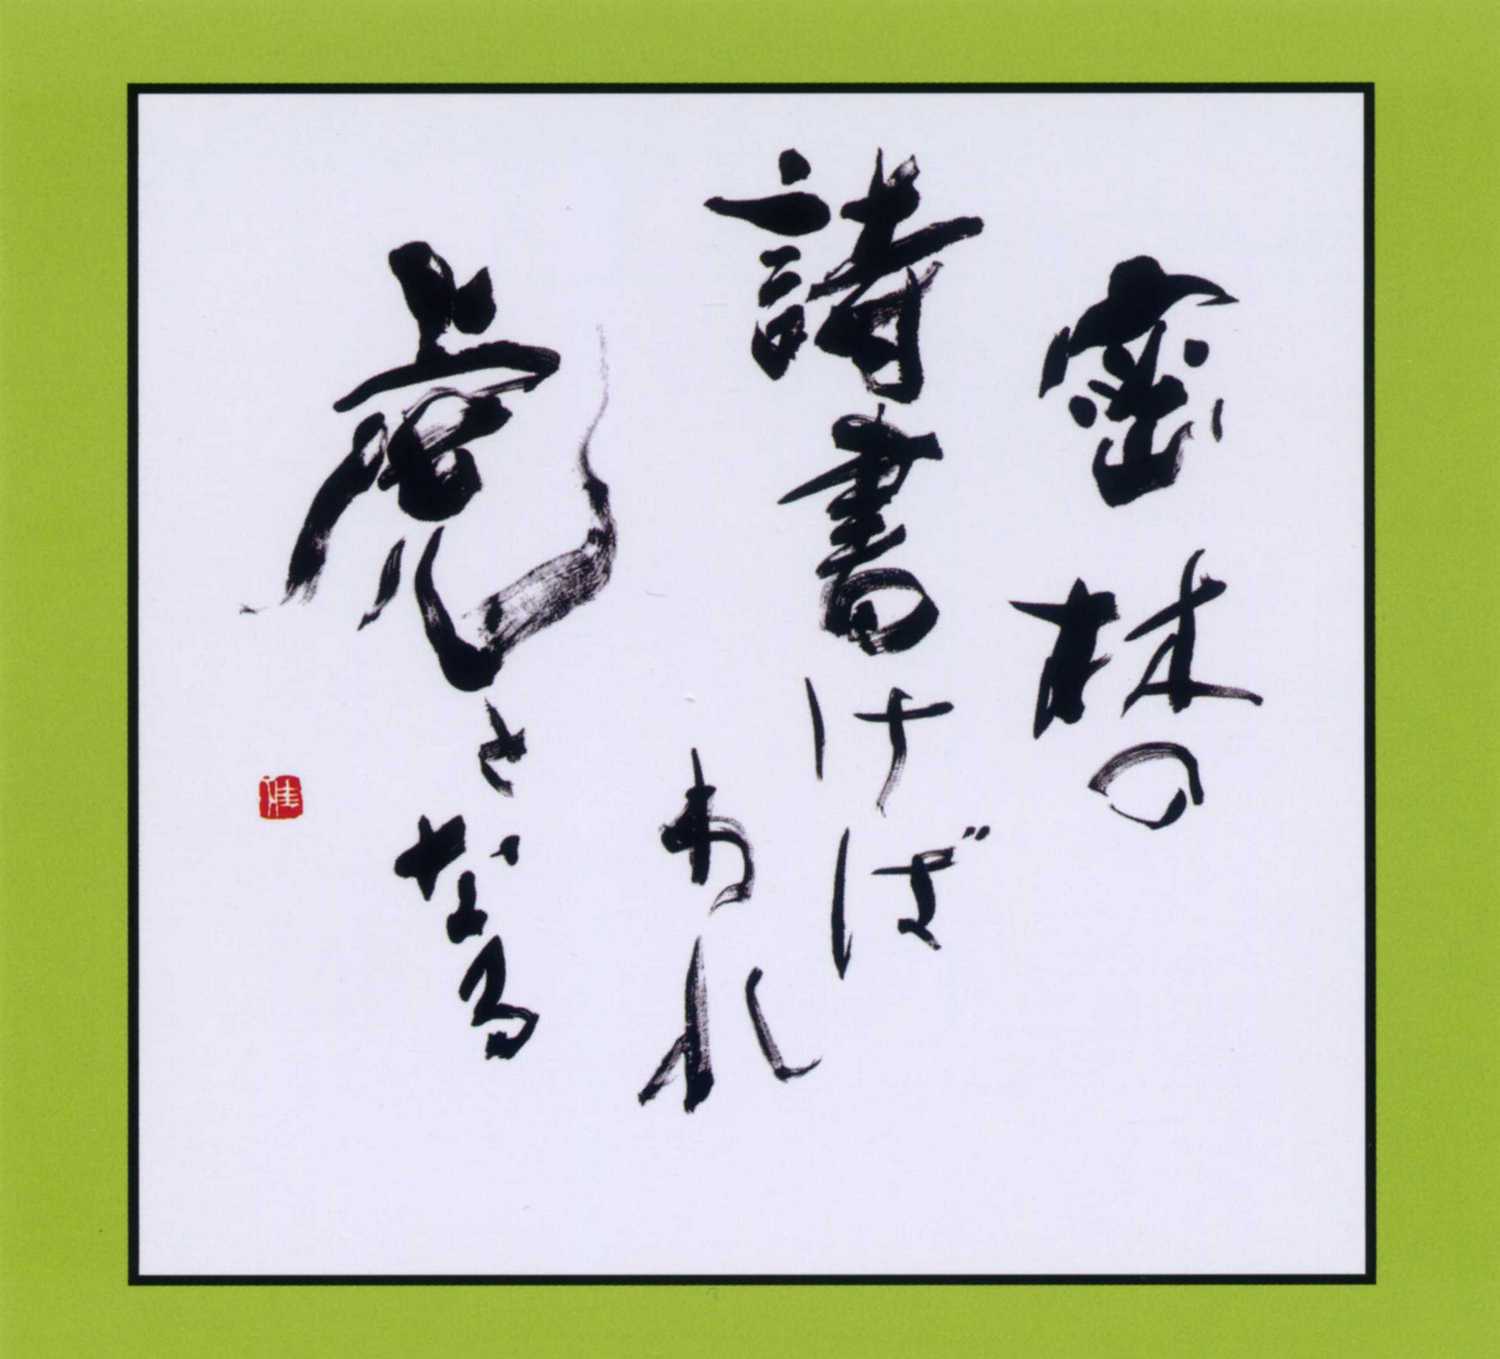 密林の
詩書けば
われ
虎となる